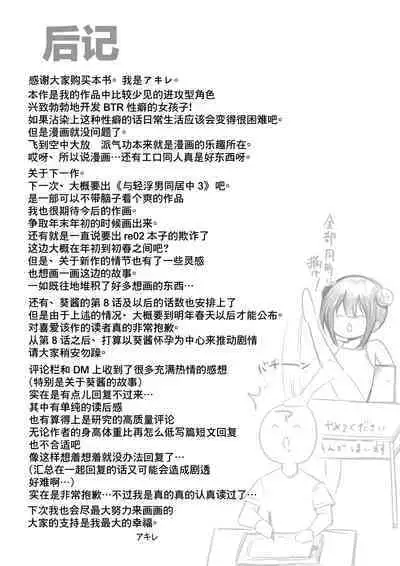 后记
感谢大家购买本书。我是アキレ。
本作是我的作品中比较少见的进攻型角色
兴致勃勃地开发 BTR 性癖的女孩子!
如果沾染上这种性癖的话日常生活应该会变得很困难吧。
但是漫画就没问题了。
飞到空中大放 派气功本来就是漫画的乐趣所在。
哎呀、所以说漫画…还有工口同人真是好东西呀。
关于下一作。
下一次、大概要出《与轻浮男同居中 3》吧。
是一部可以不带脑子看个爽的作品
我也很期待今后的作画。
争取年末年初的时候画出来。
还有就是一直说要出 re02 本子的欺诈了
这边大概在年初到初春之间吧?
但是、关于新作的情节也有了一些灵感
也想画一画这边的故事。
一如既往地堆积了好多想画的东西…
还有、葵酱的第 8 话及以后的话数也安排上了
但是由于上述的情况、大概要到明年春天以后才能公布。
对喜爱该作的读者真的非常抱歉。
从第 8 话之后、打算以葵酱怀孕为中心来推动剧情
请大家稍安勿躁。
评论栏和 DM 上收到了很多充满热情的感想
(特别是关于葵酱的故事)
实在是有点儿回复不过来…
其中有单纯的读后感
也有算得上是研究的高质量评论
无论作者的身高体重比再怎么低写篇短文回复
也不合适吧
像这样想着想着就没办法回复了…
(汇总在一起回复的话又可能会造成剧透
好难啊…)
实在是非常抱歉…不过我是真的真的认真读过了…
下次我也会尽最大努力来画画的
大家的支持是我最大的幸福。
アキレ
全部同時に
バチーン
やめてください